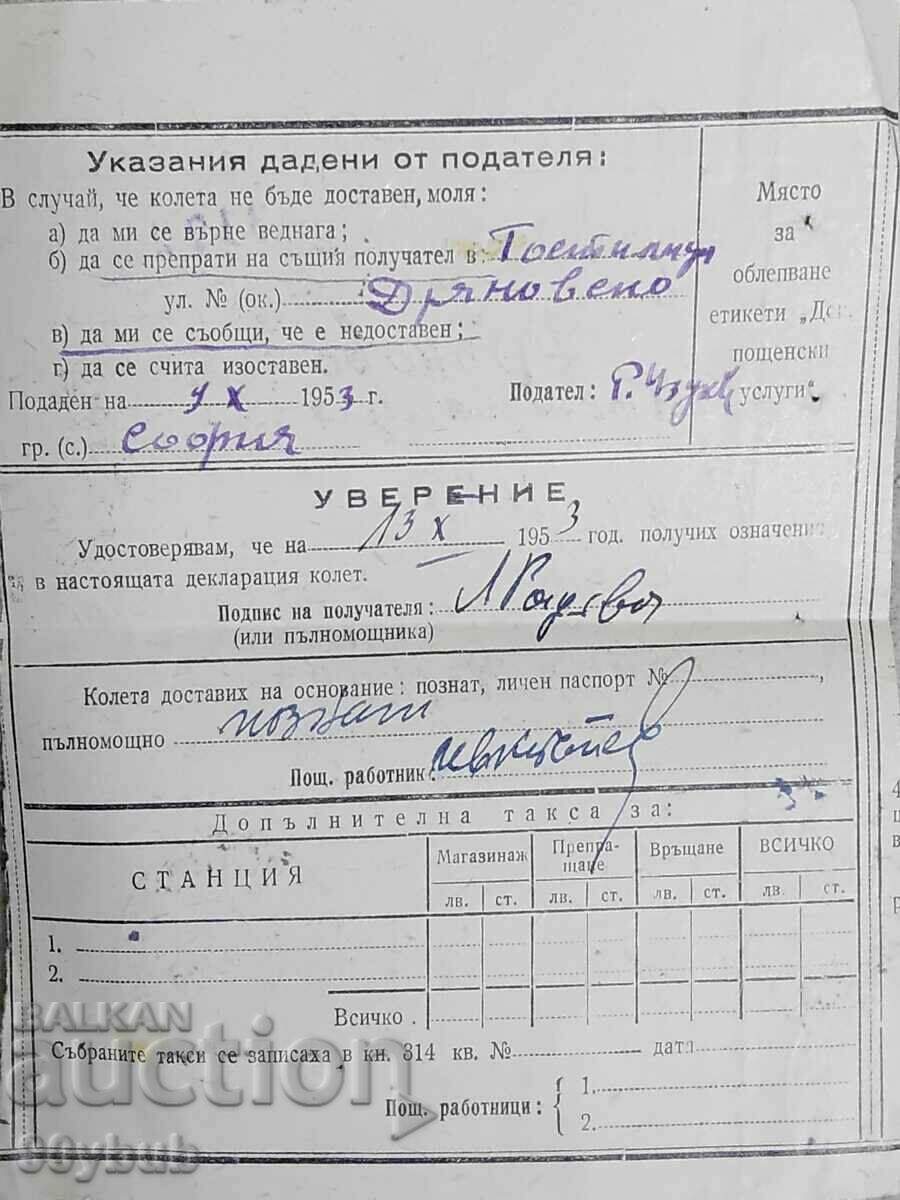 Указания дадени от подателя:
В случай, че колета не бъде доставен, моля:
а) да ми се върне веднага;
б) да се препрати на същия получател в:
ул. № (ок.) Дряновско
в) да ми се съобщи, че е недоставен;
г) да се счита изоставен.
Подаден на 9 X 1953 г. Подател:
гр. (с.) София
Място
за
облепване
етикети „Доп.
пощенски
услуги“
УВЕРЕНИЕ
Удостоверявам, че на 13 X 1953 год. получих означения
в настоящата декларация колет.
Подпис на получателя:
(или пълномощника)
Колета доставих на основание: познат, личен паспорт №,
пълномощно познат
Пощ. работник:
Допълнителна такса за:
СТАНЦИЯ Магазинаж Препра-щане Връщане ВСИЧКО
лв. ст. лв. ст. лв. ст. лв. ст.
1.
2.
Всичко .
Събраните такси се записаха в кн. 314 кв. № дата
Пощ. работници: 1.
2.
BALKAN
auction